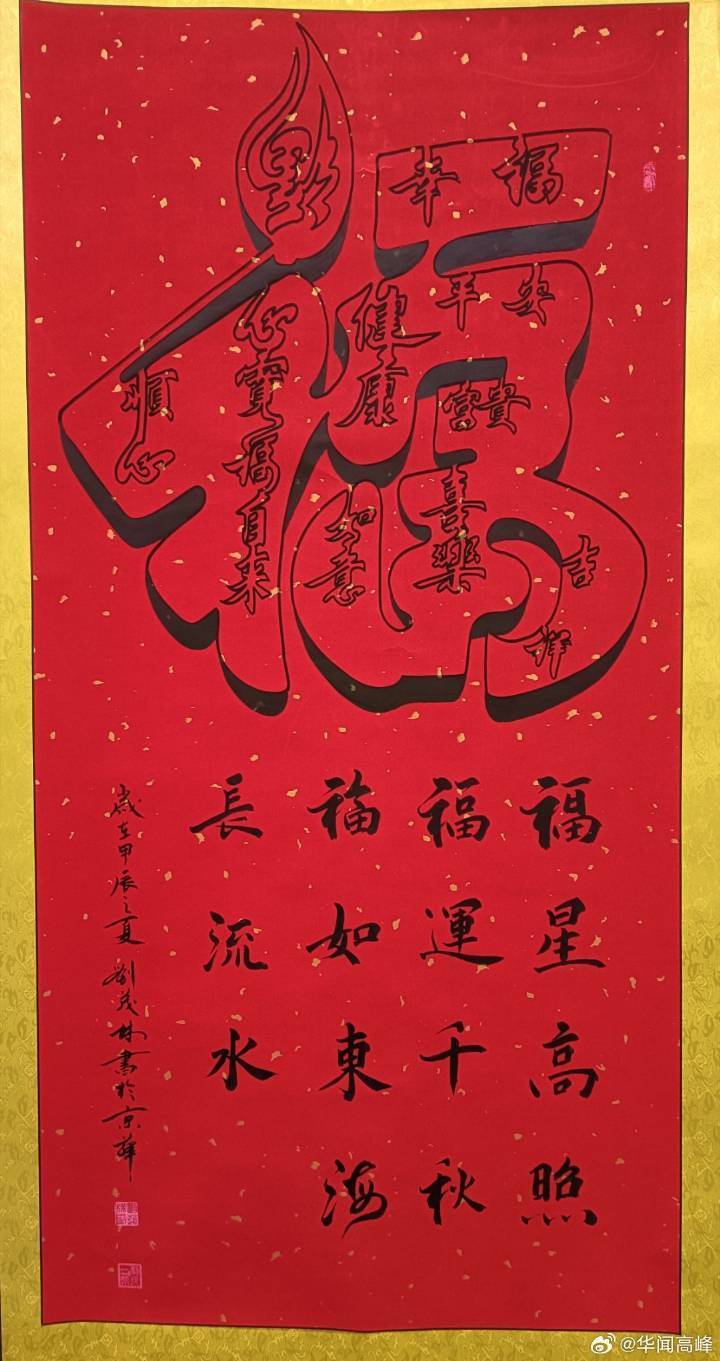 福
幸福
平安
富貴
吉祥
喜樂
健康
如意
心寬福自来
順心
福星高照
福運千秋
福如東海
長流水
歲在甲辰之夏 劉茂林書於京華
@华闻高峰